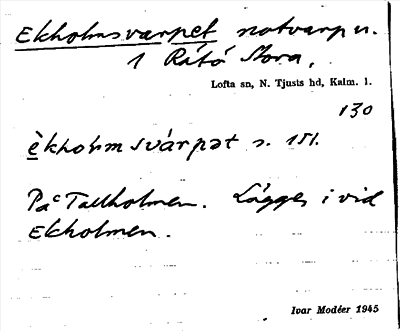 Ekholmsvarpet notvarp n.
1 Rätö Stora.
Lofta sn, N. Tjusts hd, Kalm. l.
130
èkhòḷmsvárpət s. 151.
På Tallholmen. Lägges i vid
Ekholmen.
Ivar Modéer 1945